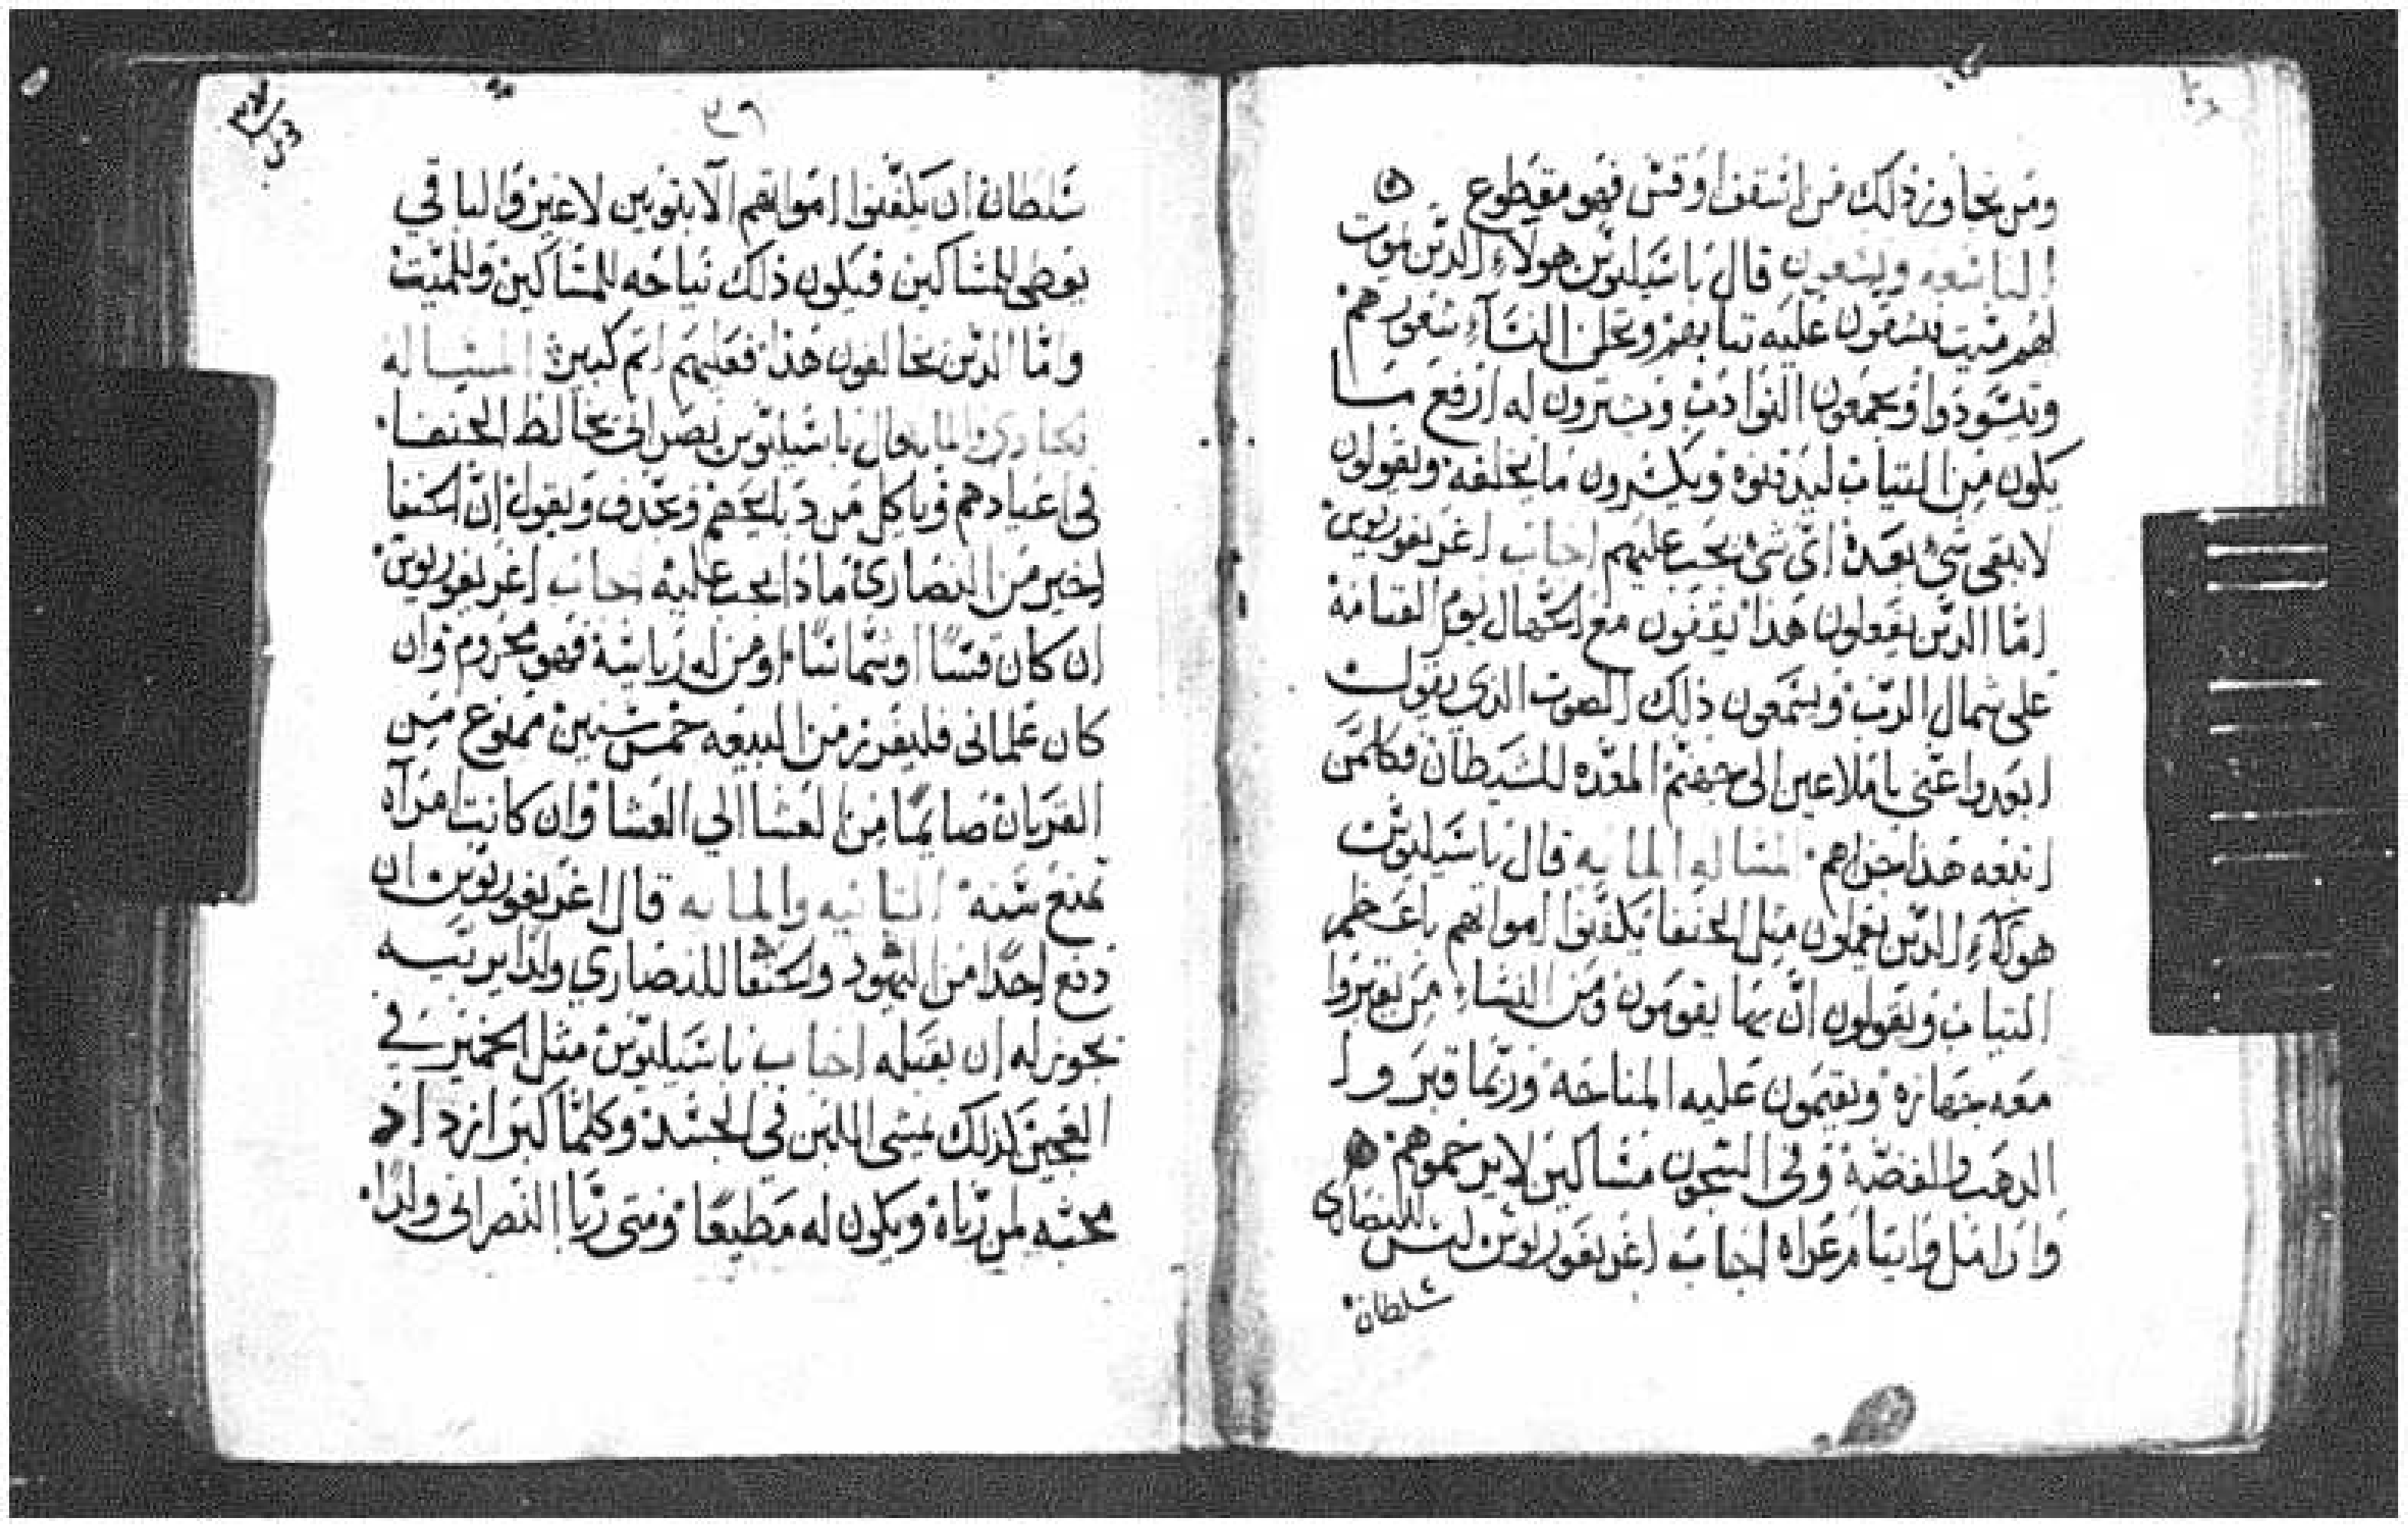 ومن تجاوز ذلك من اسقف او قس فهو مقطوع
التاسعه وتسعون قال باسيليوس هولاء الذين يموت
لهم ميت فيشقون عليه تيابهم وتحل النساء شعورهم
وتيسودوا ويجمعون النوادب ويشترون له ارفع ما
يكون من التياب ليدفنوه ويكسرون ما يخلفه ويقولون
لا يبقي شي بعده اي شي يجب عليهم اجاب اغريغوريوس
اما الذين يفعلون هذا يقفون مع الجهال يوم القيامة
علي شمال الرب ويسمعون ذلك الصوت الذي يقول
ابعدوا عني يا ملاعين الي جهنم المعده للشيطان وكلمن
اتبعه هذا جزاهم المساله المايه قال باسيليوس
هولاء الذين يعملون مثل الحنفا يكفنوا امواتهم باعظم
التياب ويقولون ان بها يقومون ومن النساء من يقبروا
معه جهازه ويقيمون عليه المناحه وربما قبروا
الدهب والفضة وفي السجون مساكين لا يرحموهم
وارامل وايتام عراه اجاب اغريغوريوس ليس للنصاري
سلطان
٣٦
سلطان ان يكفنوا امواتهم الا بتوبين لا غير والباقي
يعطي للمساكين فيكون ذلك نياحه للمساكين وللميت
واما الذين يخالفون هذا فعليهم اتم كبير المساله
الحادي والمايه قال باسيليوس نصراني يخالط الحنفا
في اعيادهم وياكل من دبايحهم ويجدف ويقول ان الحنفا
اخير من النصاري مادا يجب عليه اجاب اغريغوريوس
ان كان قسا او شماسا او من له رياسة فهو محروم وان
كان علماني فليفرز من البيعه خمس سنين ممنوع من
القربان صايما من العشا الي العشا وان كانت امراه
تمنع سنة التانيه والمايه قال اغريغوريوس ان
دفع احدا من اليهود والحنفا للنصاري ولدا يربيه
يجوز له ان يقبله اجاب باسيليوس مثل الخمير في
العجين كدلك يمشي اللبن في الجسد وكلما كبر ازداد
محبته لمن رباه ويكون له مطيعا ومتي ربا النصراني ولدا